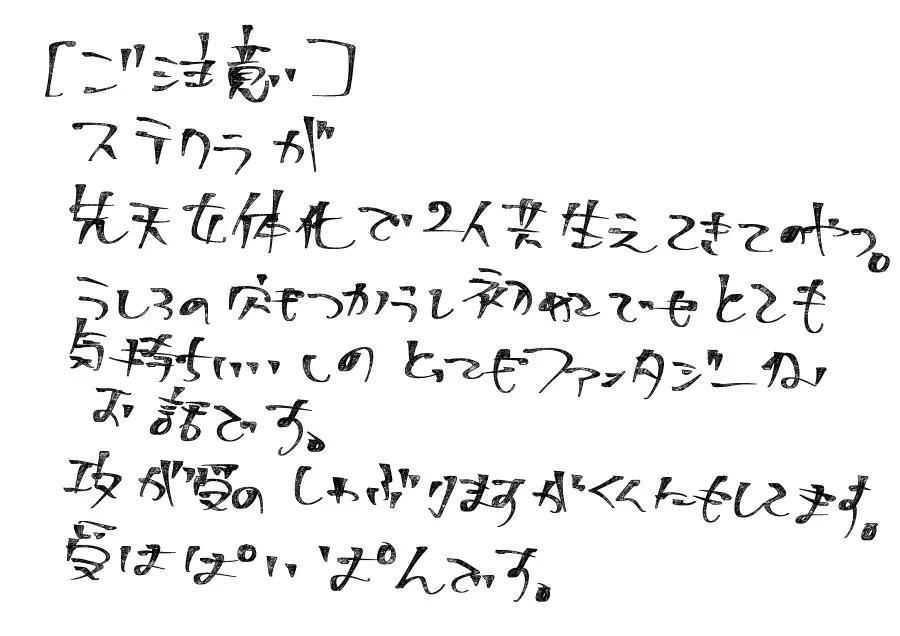 [ご注意い]
ステクラが
先天女体化で2人共生えてきてのやつ。
うしろの穴もつかうし初めてでもとても
気持ちいい…しの とってもファンタジーな
お話です。
攻が受の しゃぶりますがくんにもしてます。
受はぱいぱんです。